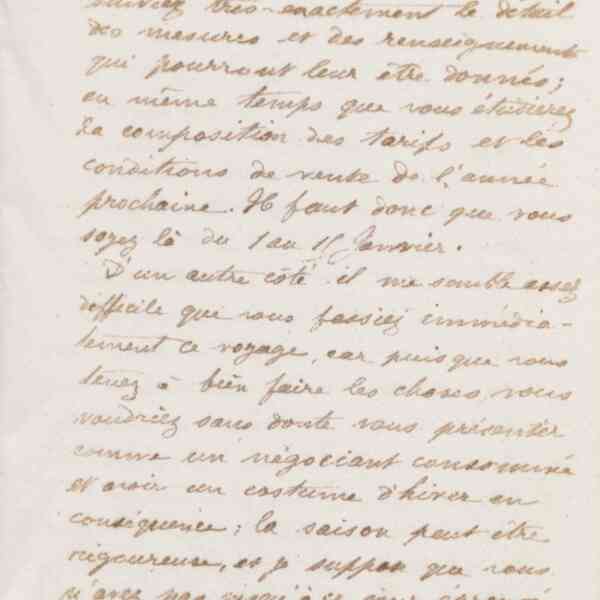 suiviez très-exactement le détail
des mesures et des renseignements
qui pourront leur être donnés;
en même temps que vous étudierez
la composition des tarifs et les
conditions de vente de l'année
prochaine. Il faut donc que vous
soyez là du 1 au 15 Janvier.
D'un autre côté il me semble assez
difficile que vous fassiez immédia-
tement ce voyage, car puisque vous
tenez à bien faire les choses, vous
voudriez sans doute vous présenter
comme un négociant consommé
et avoir un costume d'hiver en
conséquence; la saison peut être
rigoureuse, et je suppose que vous
n'avez pas jusqu'à ce jour